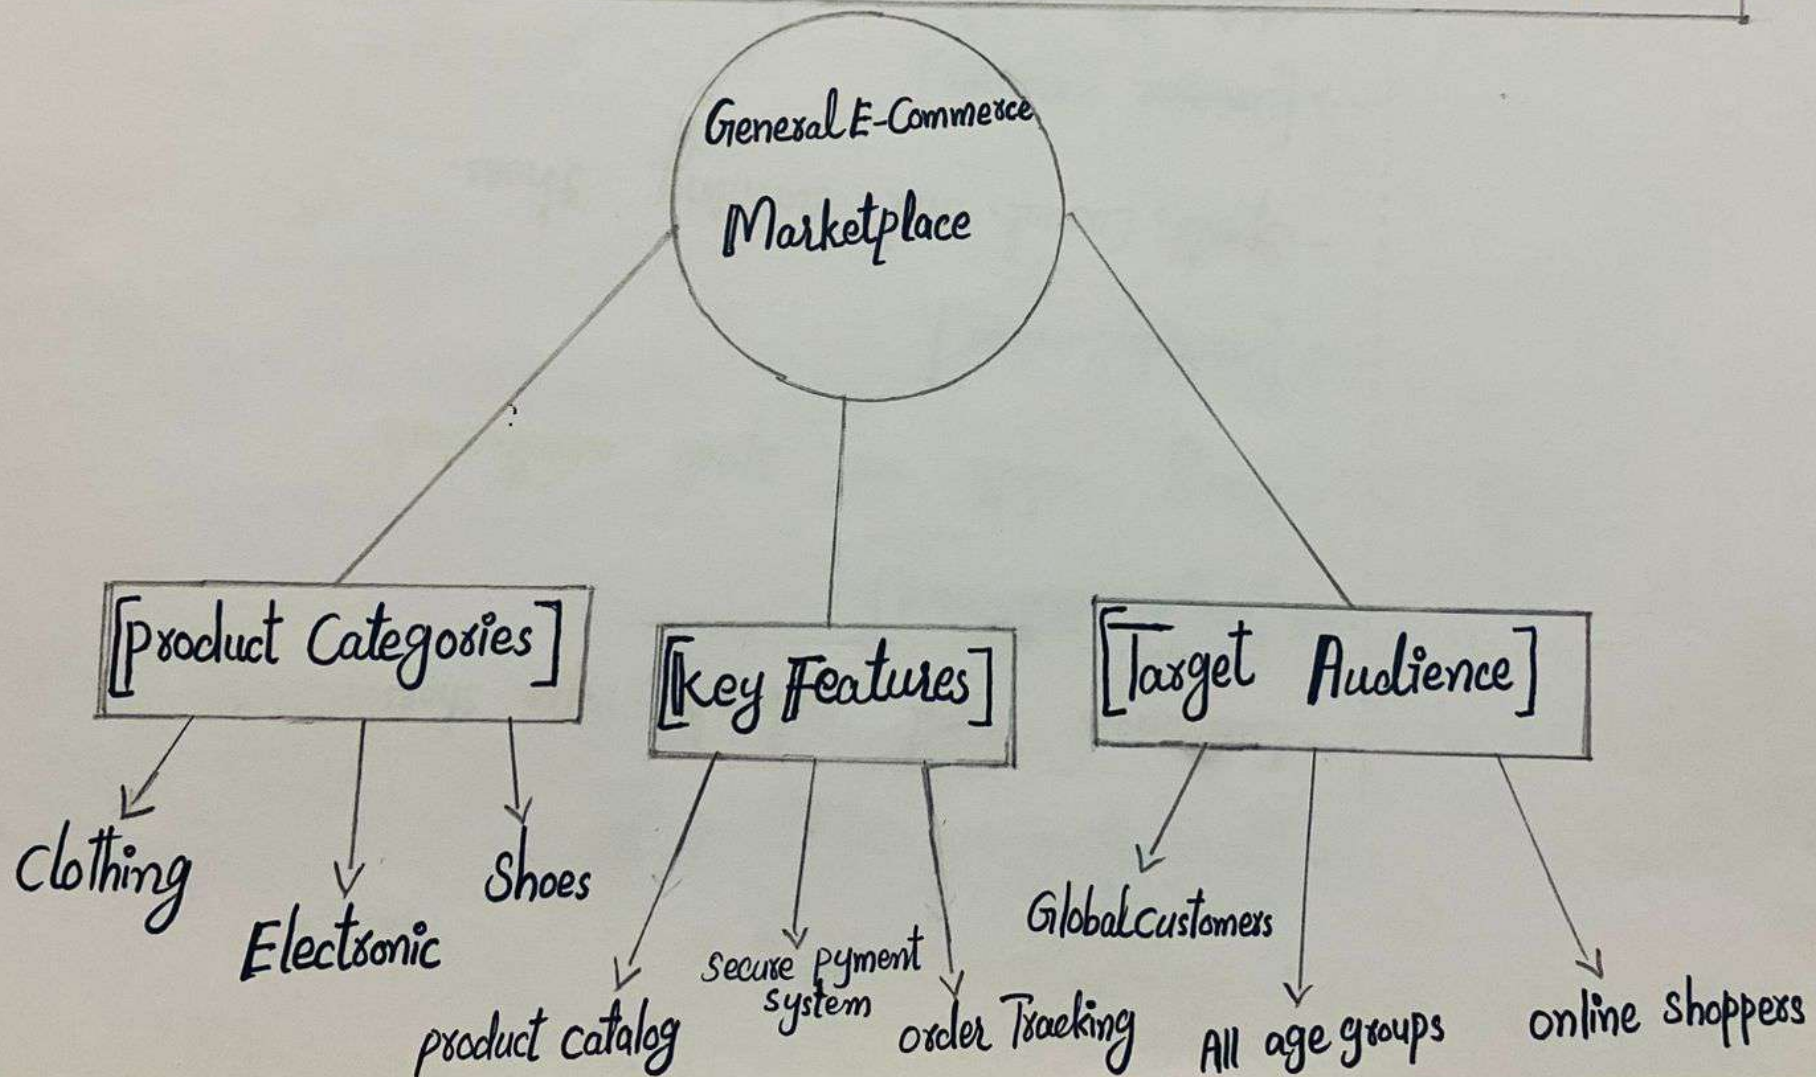 General E-Commerce
Marketplace
[Product Categories]
[Key Features]
[Target Audience]
Clothing
Electronic
Shoes
product catalog
secure pyment
system
order Tracking
Global customers
All age groups
online shoppers